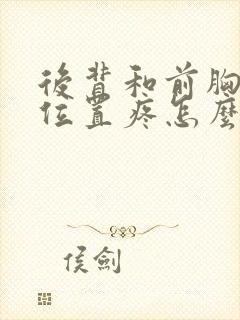 後背和前胸
位置疼怎麼
侯劍